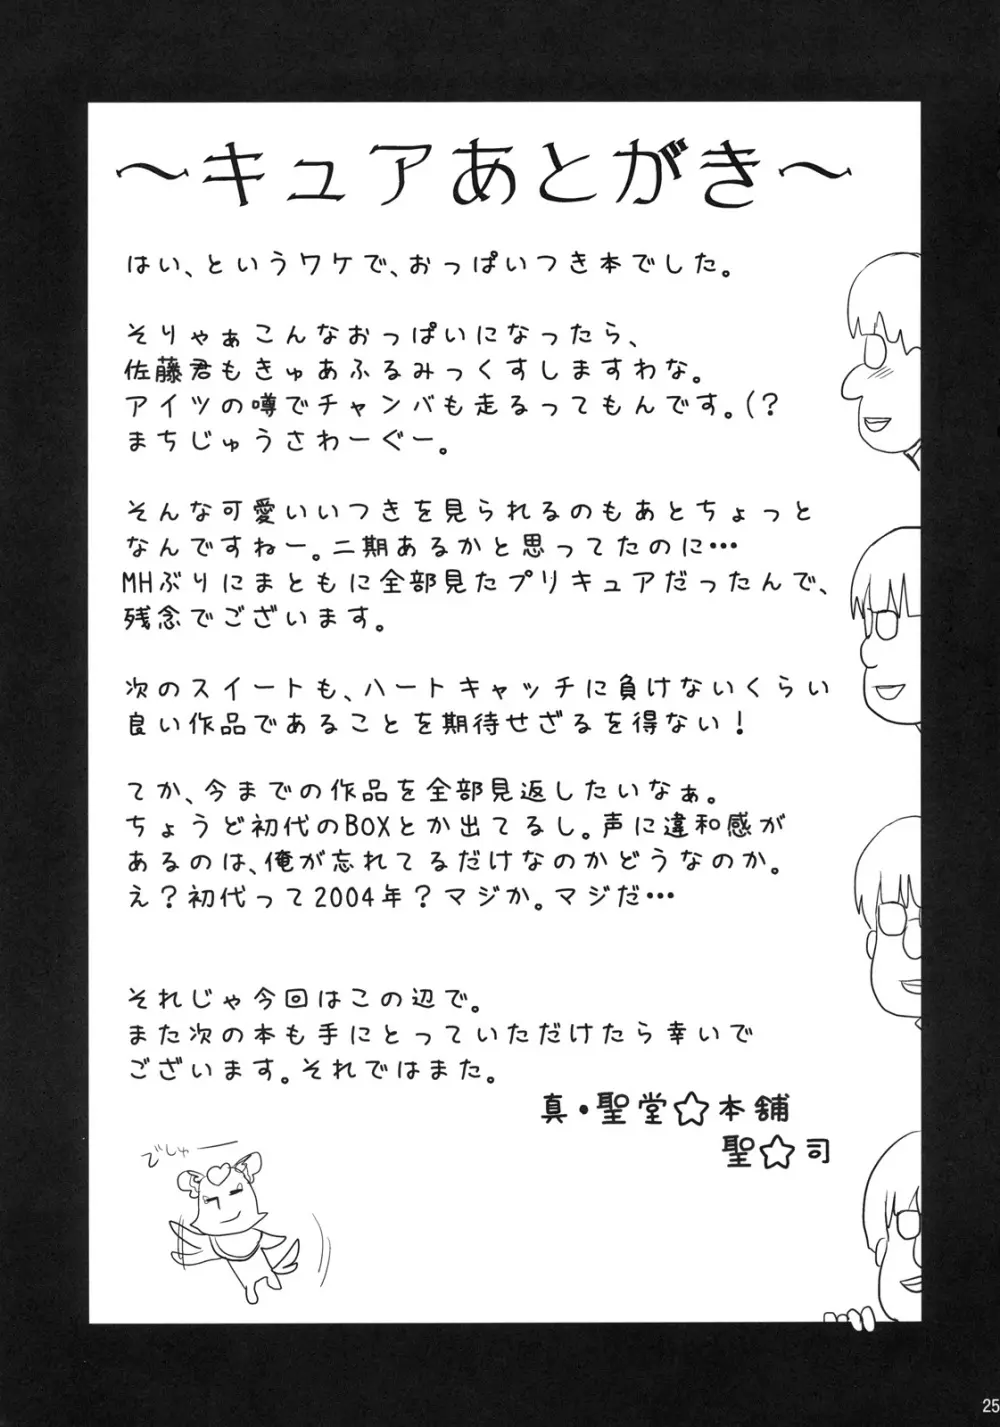 ～キュアあとがき～
はい、というワケで、おっぱいつき本でした。
そりゃぁこんなおっぱいになったら、
佐藤君もきゅあふるみっくすしますわな。
アイツの噂でチャンバも走るってもんです。(？
まちじゅうさわーぐー。
そんな可愛いいつきを見られるのもあとちょっと
なんですねー。二期あるかと思ってたのに…
MHぶりにまともに全部見たプリキュアだったんで、
残念でございます。
次のスイートも、ハートキャッチに負けないくらい
良い作品であることを期待せざるを得ない！
てか、今までの作品を全部見返したいなぁ。
ちょうど初代のBOXとか出てるし。声に違和感が
あるのは、俺が忘れてるだけなのかどうなのか。
え？初代って2004年？マジか。マジだ…
それじゃ今回はこの辺で。
また次の本も手にとっていただけたら幸いで
ございます。それではまた。
真・聖堂☆本舗
聖☆司
でしゅー
25